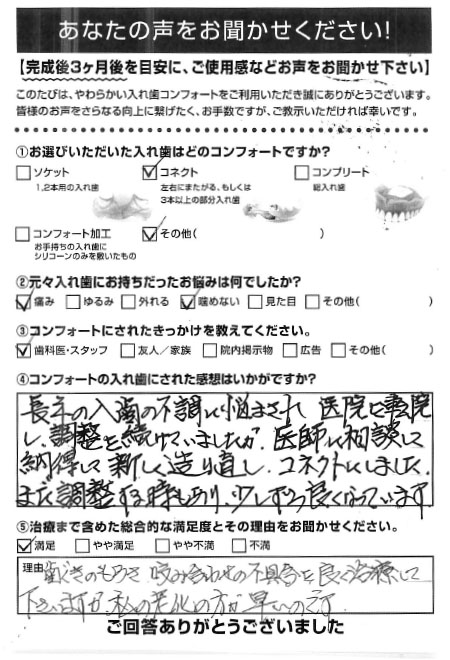 あなたの声をお聞かせください!
【完成後3ヶ月後を目安に、ご使用感などお声をお聞かせ下さい】
このたびは、やわらかい入れ歯コンフォートをご利用いただき誠にありがとうございます。
皆様のお声をさらなる向上に繋げたく、お手数ですが、ご教示いただければ幸いです。
①お選びいただいた入れ歯はどのコンフォートですか?
ソケット コネクト コンプリート
1,2本用の入れ歯 左右にまたがる、もしくは 総入れ歯
3本以上の部分入れ歯
コンフォート加工 その他( )
お手持ちの入れ歯に
シリコーンのみを敷いたもの
②元々入れ歯にお持ちだったお悩みは何でしたか?
痛み ゆるみ 外れる 噛めない 見た目 その他( )
③コンフォートにされたきっかけを教えてください。
歯科医・スタッフ 友人/家族 院内掲示物 広告 その他( )
④コンフォートの入れ歯にされた感想はいかがですか?
長年の入歯の不調に悩まされ 医院を転院
し、調整を続けていましたが、医師に相談して
納得して新しく造り直し、コネクトにしました。
まだ調整する時もあり、少しずつ良くなっています
⑤治療まで含めた総合的な満足度とその理由をお聞かせください。
満足 やや満足 やや不満 不満
理由 歯ぐきのもろさ 咬み合わせの不具合を良く治療して
下さいますが、私の老化の方が早いのです
ご回答ありがとうございました